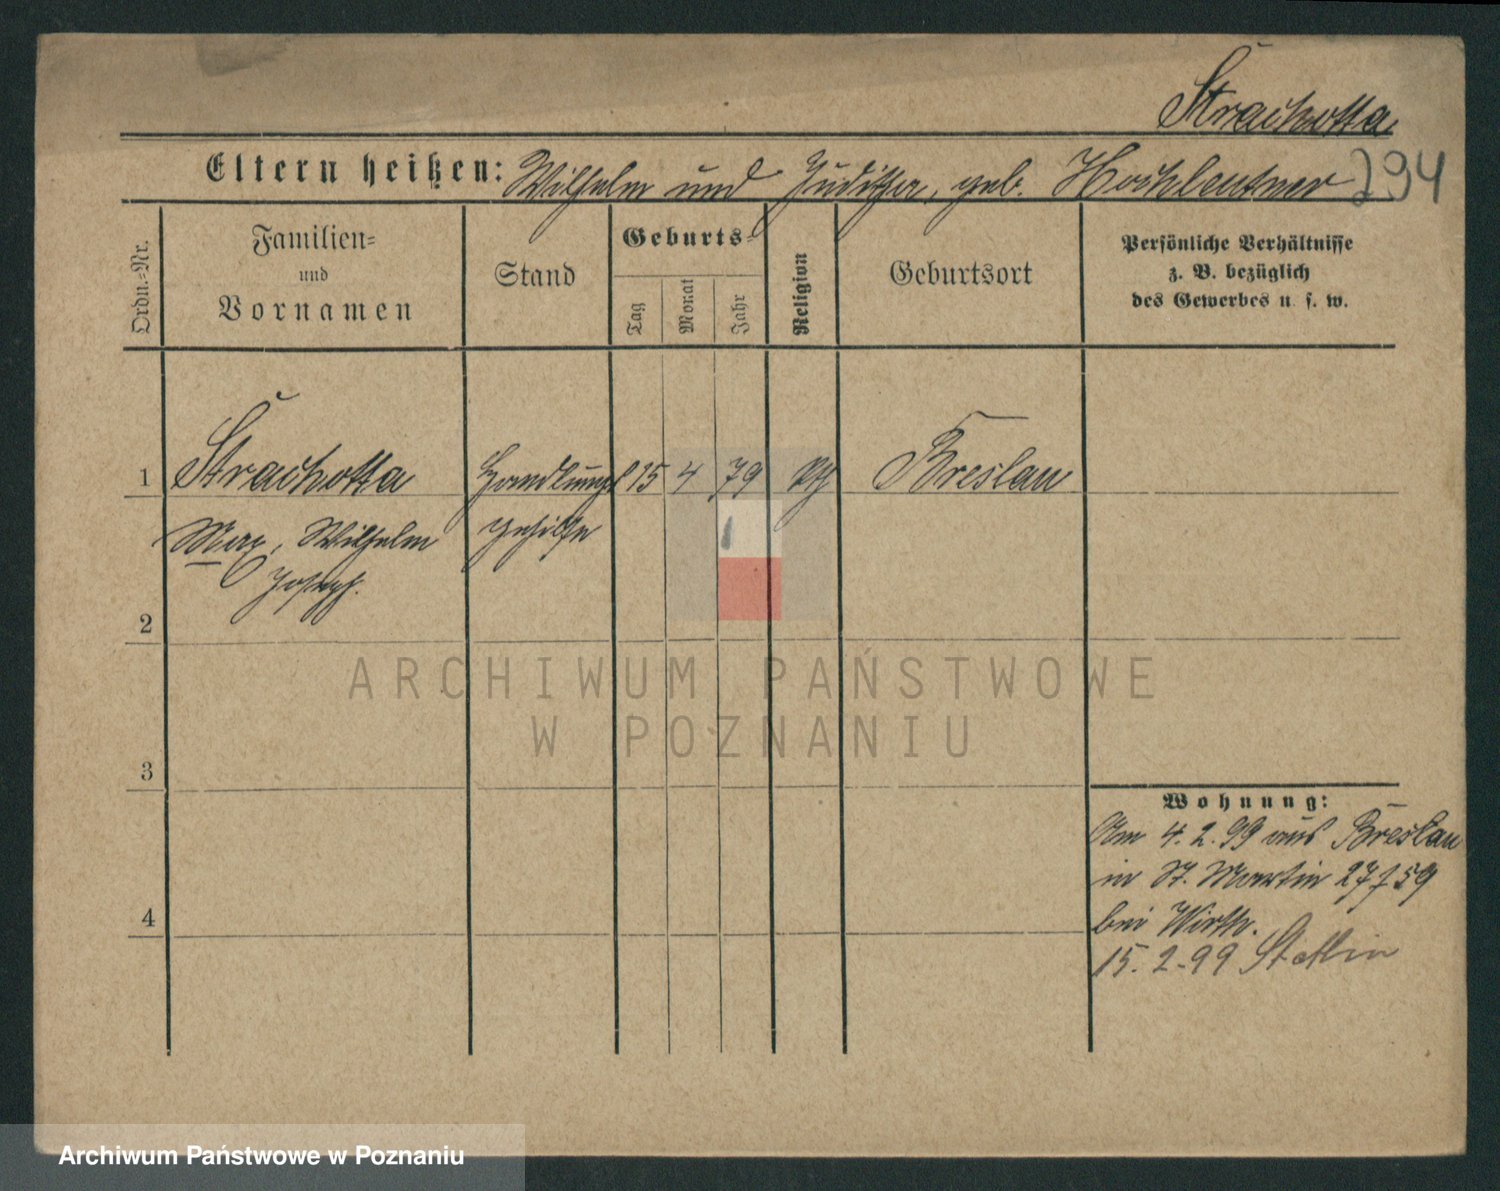 Strachotta
Eltern heißen: Wilhelm und Juditha, geb. Hochleutner
294
Ordn.-Nr.
Familien-
und
Vornamen
Stand
Geburts-
Tag
Monat
Jahr
Religion
Geburtsort
Persönliche Verhältnisse
z. B. bezüglich
des Gewerbes u. s. w.
1 Strachotta Handlungs 15 4 79 Kth Breslau
Max, Wilhelm gehilfe
Joseph.
2
3
4
Wohnung:
Am 4.2.99 aus Breslau
in St. Martin 27 / 59
bei Wirth.
15.2.99 Stettin
ARCHIWUM PAŃSTWOWE
W POZNANIU
Archiwum Państwowe w Poznaniu